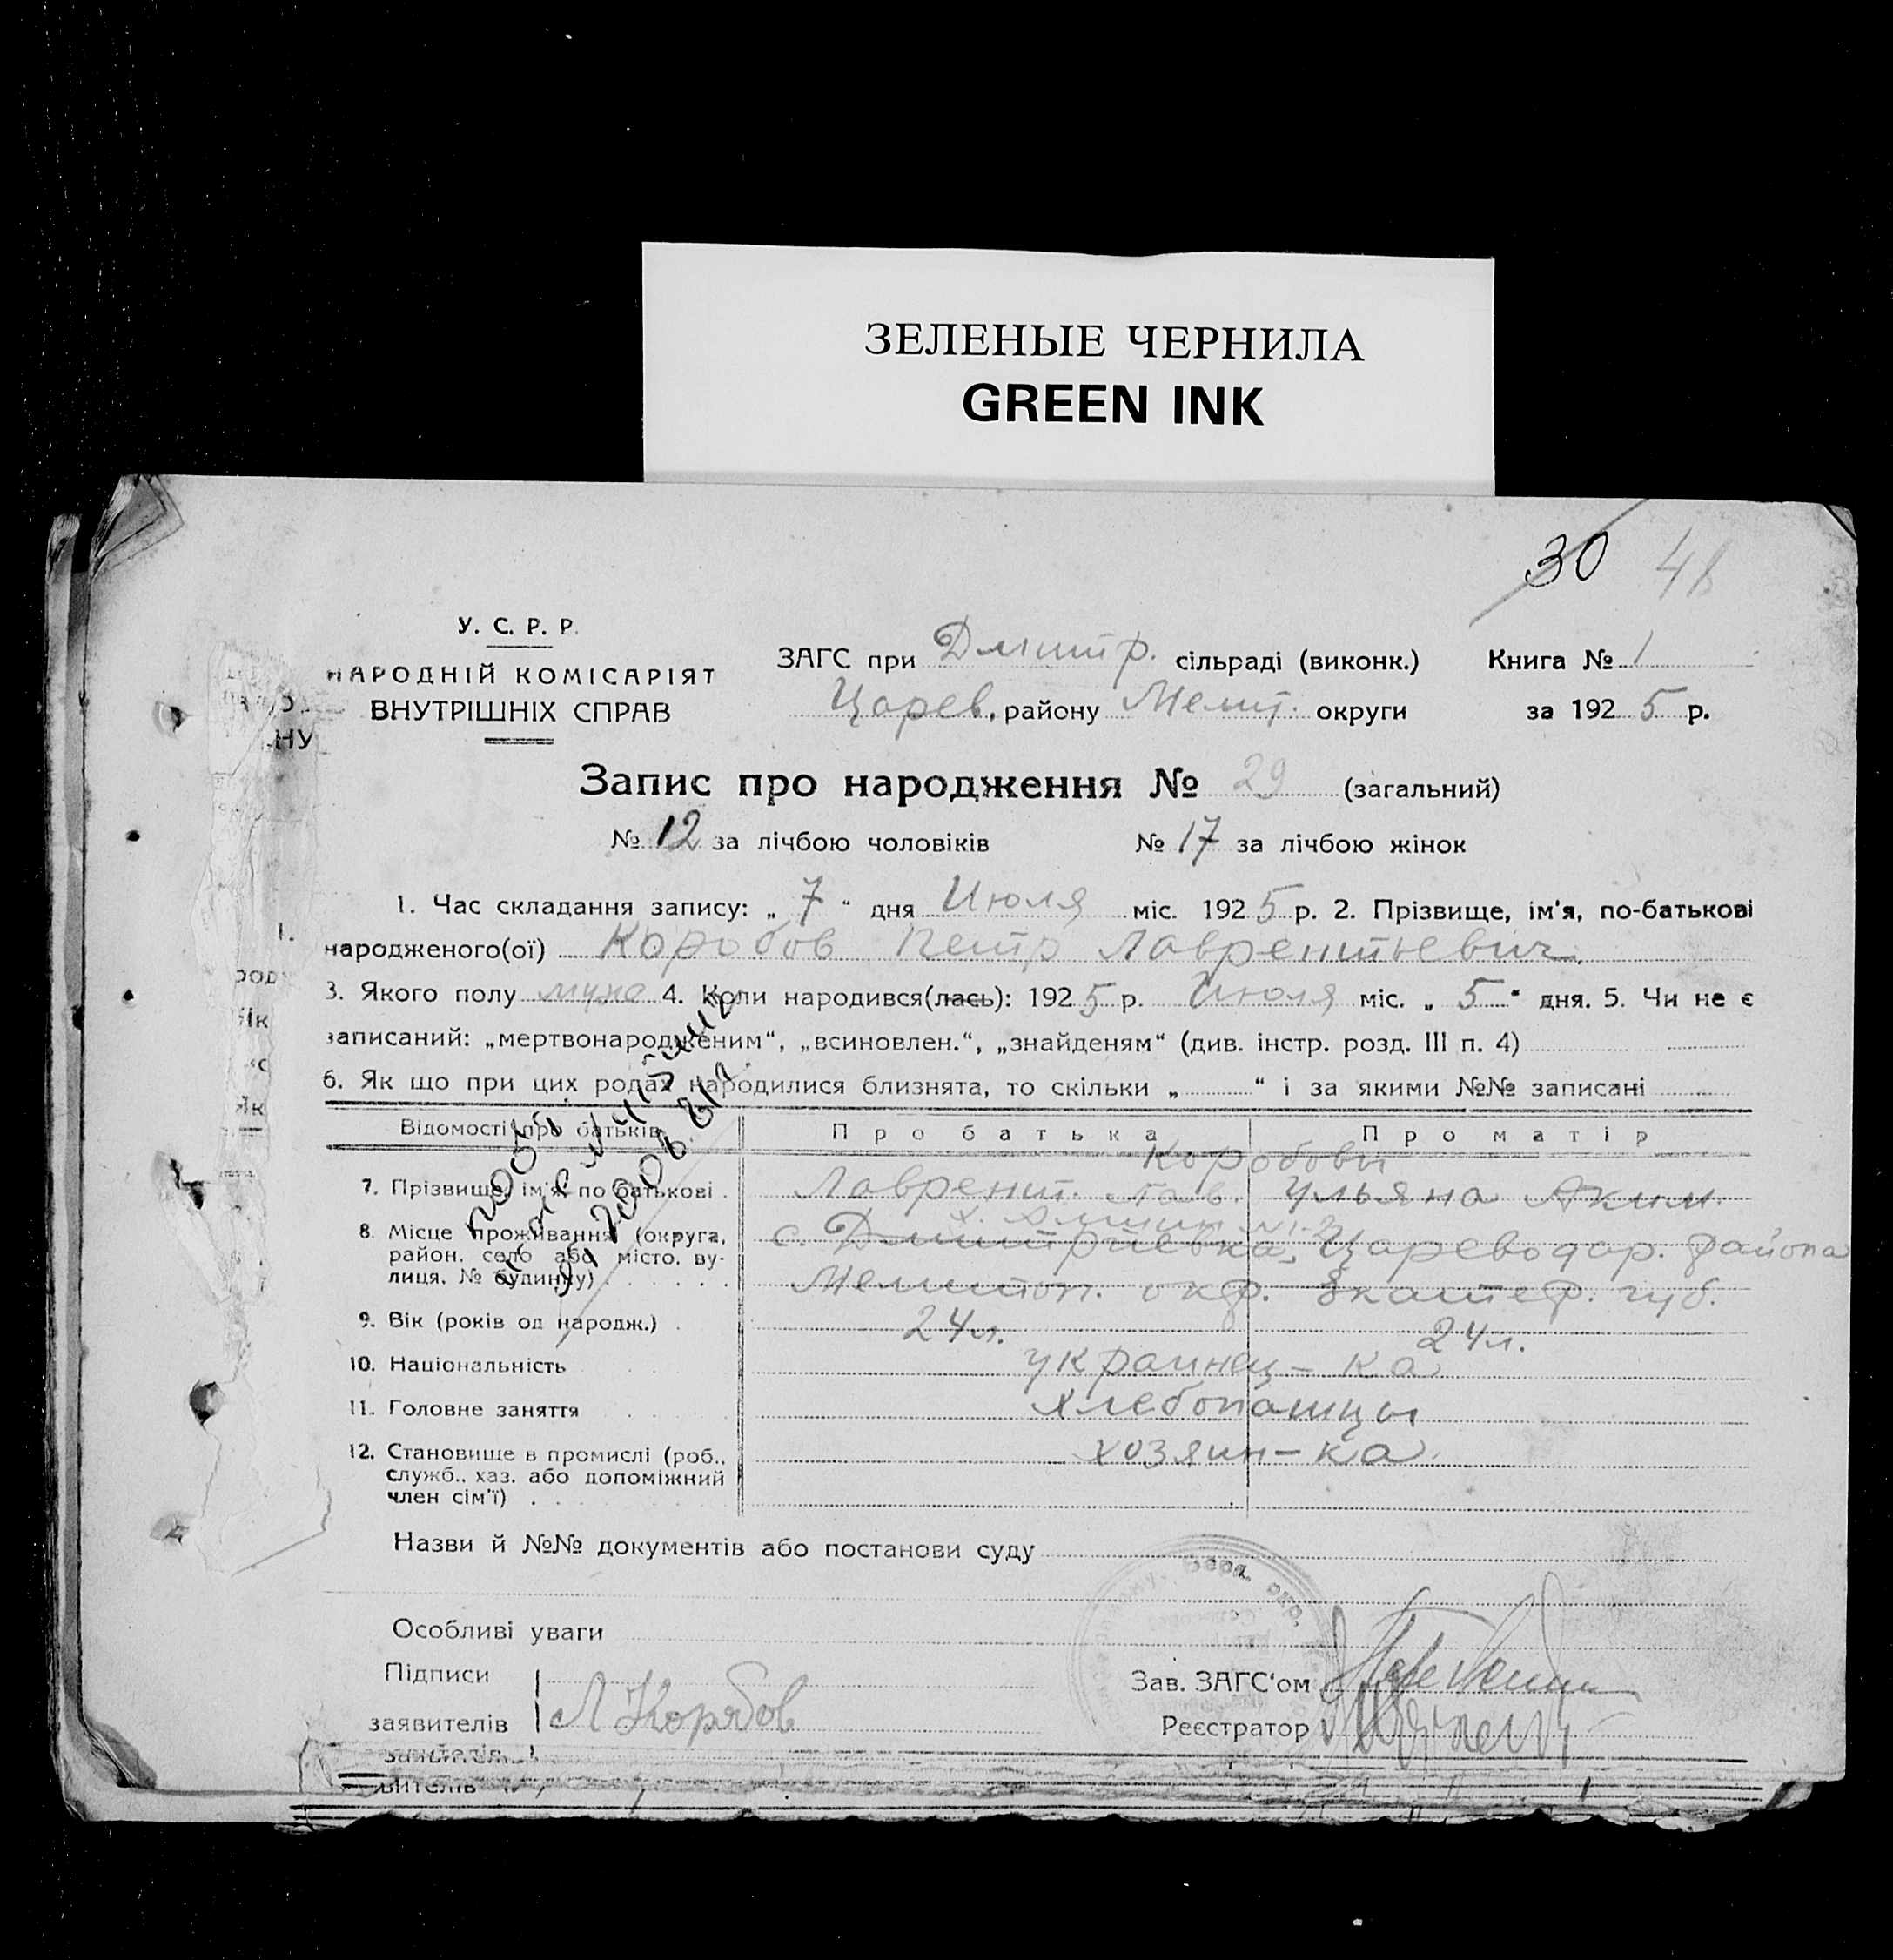 ЗЕЛЕНЫЕ ЧЕРНИЛА
GREEN INK
30 48
У. С. Р. Р.
НАРОДНІЙ КОМІСАРІЯТ
ВНУТРІШНІХ СПРАВ
ЗАГС при Дмитр. сільраді (виконк.) Книга № 1
Царев. району Мелит. округи за 1925 р.
Запис про народження № 29 (загальний)
№ 12 за лічбою чоловіків № 17 за лічбою жінок
1. Час складання запису: „ 7 “ дня Июля міс. 1925 р. 2. Прізвище, ім'я, по-батькові
народженого(ої) Коробов Петр Лаврентьевич.
3. Якого полу муже 4. Коли народився(лась): 1925 р. Июля міс. „ 5 “ дня. 5. Чи не є
записаний: „мертвонародженим“, „всиновлен.“, „знайденям“ (див. інстр. розд. III п. 4)
6. Як що при цих родах народилися близнята, то скільки „ “ і за якими №№ записані
Відомості про батьків Про батька Про матір
Коробовы
7. Прізвище, ім'я, по батькові Лаврент. Ульяна Аким.
8. Місце проживання (округа, район, село або місто, вулиця, № будинку) с. Дмитриевка, Цареводар. района
Мелитоп. окр. Екатер. губ.
9. Вік (років од народж.) 24 л. 24 л.
10. Національність украинец - ка
11. Головне заняття хлебопашцы
12. Становище в промислі (роб., служб., хаз. або допоміжний член сім'ї) хозяин - ка
Назви й №№ документів або постанови суду
Особливі уваги
Підписи
заявителів Л Коробов
Зав. ЗАГС'ом
Реєстратор